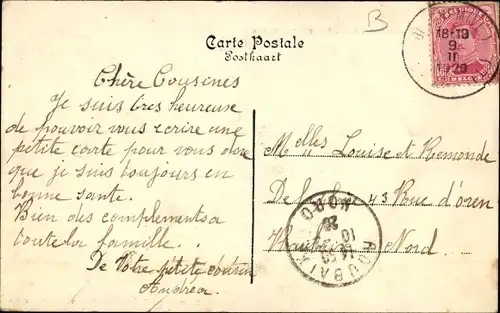 B
Carte Postale
Postkaart
BELGIQUE
18-19
9
II
1920
BELGIE
Chère Cousines
Je suis très heureuse
de pouvoir vous écrire une
petite carte pour vous dire
que je suis toujours en
bonne sante.
Bien des complements a
toute la famille.
De Votre petite cousine
Andréa.
Melles Louise et Remonde
43 Rue d'oren
Roubaix Nord
ROUBAIX
NORD
10
20